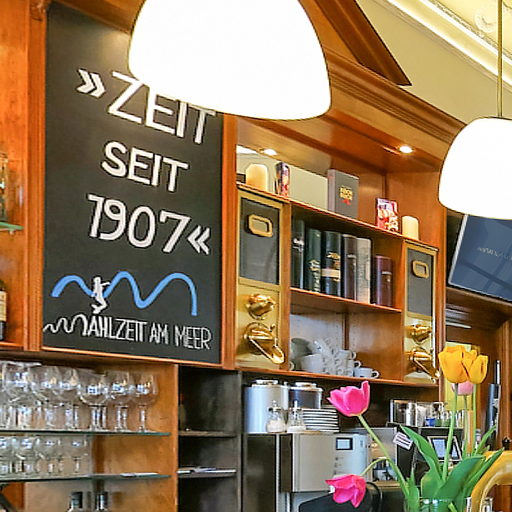 »ZEIT
SEIT
1907«
MAHLZEIT AM MEER